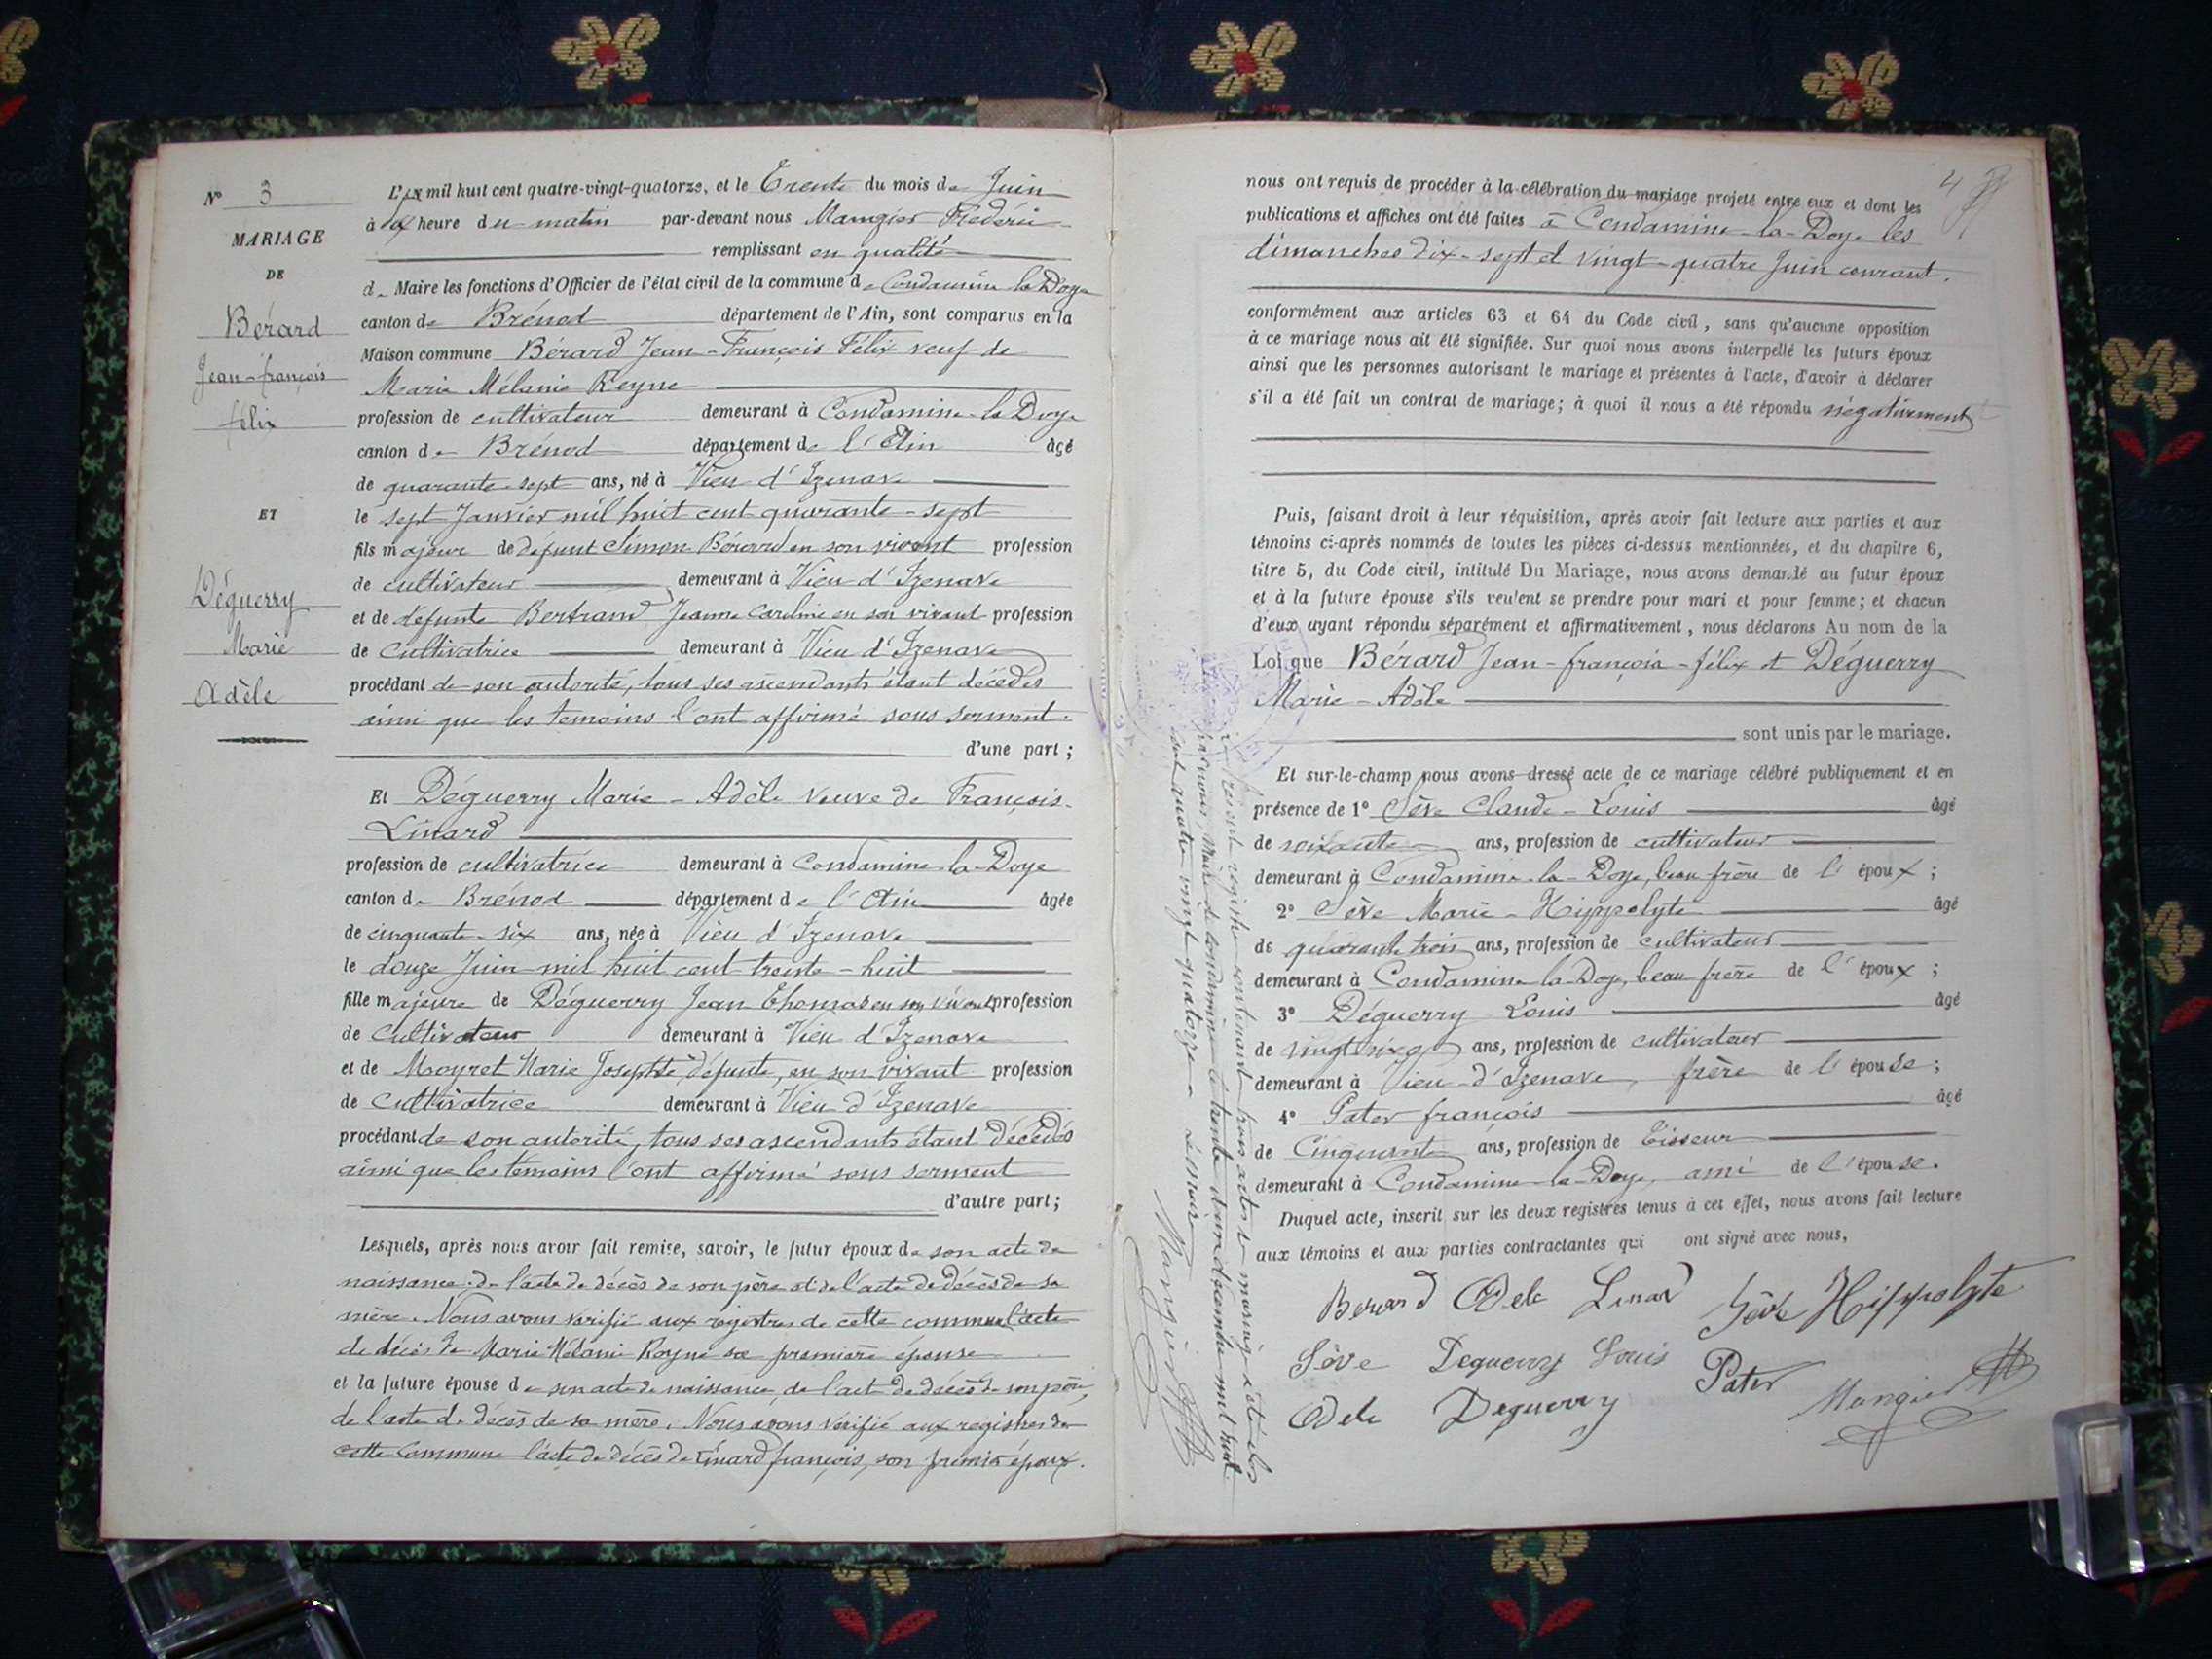 N° 3
MARIAGE
DE
Bérard
Jean-françois
félix
ET
Déguerry
Marie
Adèle
L'an mil huit cent quatre-vingt-quatorze, et le Trente du mois de Juin
à heure du matin par-devant nous Mangier Frédéric
remplissant en qualité
de Maire les fonctions d'Officier de l'état civil de la commune de Condamine la Doye
canton de Brénod département de l'Ain, sont comparus en la
Maison commune Bérard Jean-François Félix veuf de
Marie Mélanie Reyne
profession de cultivateur demeurant à Condamine-la Doye
canton de Brénod département de l'Ain âgé
de quarante-sept ans, né à Vieu d'Izenave
le sept Janvier mil huit cent quarante-sept
fils majeur de défunt Simon Bérard en son vivant profession
de cultivateur demeurant à Vieu d'Izenave
et de défunte Bertrand Jeanne Caroline en son vivant profession
de cultivatrice demeurant à Vieu d'Izenave
procédant de son autorité, tous ses ascendants étant décédés
ainsi que les temoins l'ont affirmé sous serment.
d'une part ;
Et Déguerry Marie-Adèle veuve de François
Linard
profession de cultivatrice demeurant à Condamine-la-Doye
canton de Brénod département de l'Ain âgée
de cinquante-six ans, née à Vieu d'Izenave
le douze Juin mil huit cent trente-huit
fille majeure de Déguerry Jean Thomas en son vivant profession
de cultivateur demeurant à Vieu d'Izenave
et de Moyret Marie Josephte défunte, en son vivant profession
de cultivatrice demeurant à Vieu d'Izenave
procédant de son autorité, tous ses ascendants étant décédés
ainsi que les témoins l'ont affirmé sous serment
d'autre part ;
Lesquels, après nous avoir fait remise, savoir, le futur époux de son acte de
naissance de l'acte de décès de son père et de l'acte de décès de sa
mère. Nous avons vérifié aux registres de cette commune l'acte
de décès de Marie Mélanie Reyne sa première épouse
et la future épouse de son acte de naissance, de l'acte de décès de son père,
de l'acte de décès de sa mère. Nous avons vérifié aux registres de
cette Commune l'acte de décès de Linard françois, son premier époux.
nous ont requis de procéder à la célébration du mariage projeté entre eux et dont les
publications et affiches ont été faites à Condamine-la-Doye les
dimanches dix-sept et vingt-quatre Juin courant.
conformément aux articles 63 et 64 du Code civil, sans qu'aucune opposition
à ce mariage nous ait été signifiée. Sur quoi nous avons interpellé les futurs époux
ainsi que les personnes autorisant le mariage et présentes à l'acte, d'avoir à déclarer
s'il a été fait un contrat de mariage ; à quoi il nous a été répondu négativement
Puis, faisant droit à leur réquisition, après avoir fait lecture aux parties et aux
témoins ci-après nommés de toutes les pièces ci-dessus mentionnées, et du chapitre 6,
titre 5, du Code civil, intitulé Du Mariage, nous avons demandé au futur époux
et à la future épouse s'ils veulent se prendre pour mari et pour femme ; et chacun
d'eux ayant répondu séparément et affirmativement, nous déclarons Au nom de la
Loi que Bérard Jean-françois-félix et Déguerry
Marie-Adèle
sont unis par le mariage.
Et sur-le-champ nous avons dressé acte de ce mariage célébré publiquement et en
présence de 1° Sève Claude-Louis âgé
de soixante ans, profession de cultivateur
demeurant à Condamine-la-Doye, beau frère de l'époux ;
2° Sève Marie-Hippolyte âgé
de quarante trois ans, profession de cultivateur
demeurant à Condamine-la-Doye, beau frère de l'époux ;
3° Déguerry Louis âgé
de ans, profession de cultivateur
demeurant à Vieu-d'Izenave, frère de l'épouse ;
4° Pater françois âgé
de Cinquante ans, profession de Tisseur
demeurant à Condamine-la-Doye, ami de l'épouse.
Duquel acte, inscrit sur les deux registres tenus à cet effet, nous avons fait lecture
aux témoins et aux parties contractantes qui ont signé avec nous,
Berard Adele Linard Sève Hippolyte
Sève Deguerry Louis Pater
Adele Deguerry Mangier
présent registre contenant trois actes de mariage a été clos
par nous, Maire de Condamine le trente décembre mil huit
cent quatre vingt quatorze Le Maire
Mangier